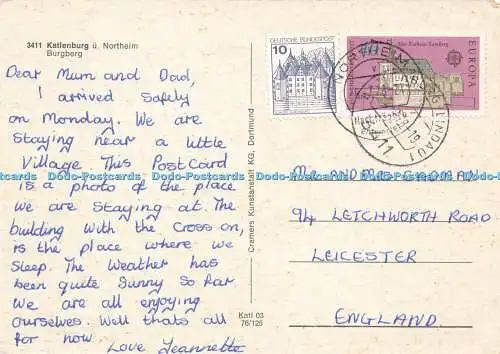 3411 Katlenburg ü. Northeim
Burgberg
Dear Mum and Dad,
I arrived Safely
on Monday. We are
Staying near a little
Village. This Postcard
is a photo of the place
we are Staying at. The
building with the Cross on,
is the place where we
Sleep. The Weather has
been quite Sunny So far.
We are all enjoying
ourselves. Well thats all
for now.
Love Jeannette
Cramers Kunstanstalt KG, Dortmund
Katl 03
76/125
DEUTSCHE BUNDESPOST
10
EUROPA
NORTHEIM
LINDAU 1
3411
MR AND MRS
94 LETCHWORTH ROAD
LEICESTER
ENGLAND
Dodo-Postcards Dodo-Postcards Dodo-Postcards Dodo-Postcards Dodo-Postcards